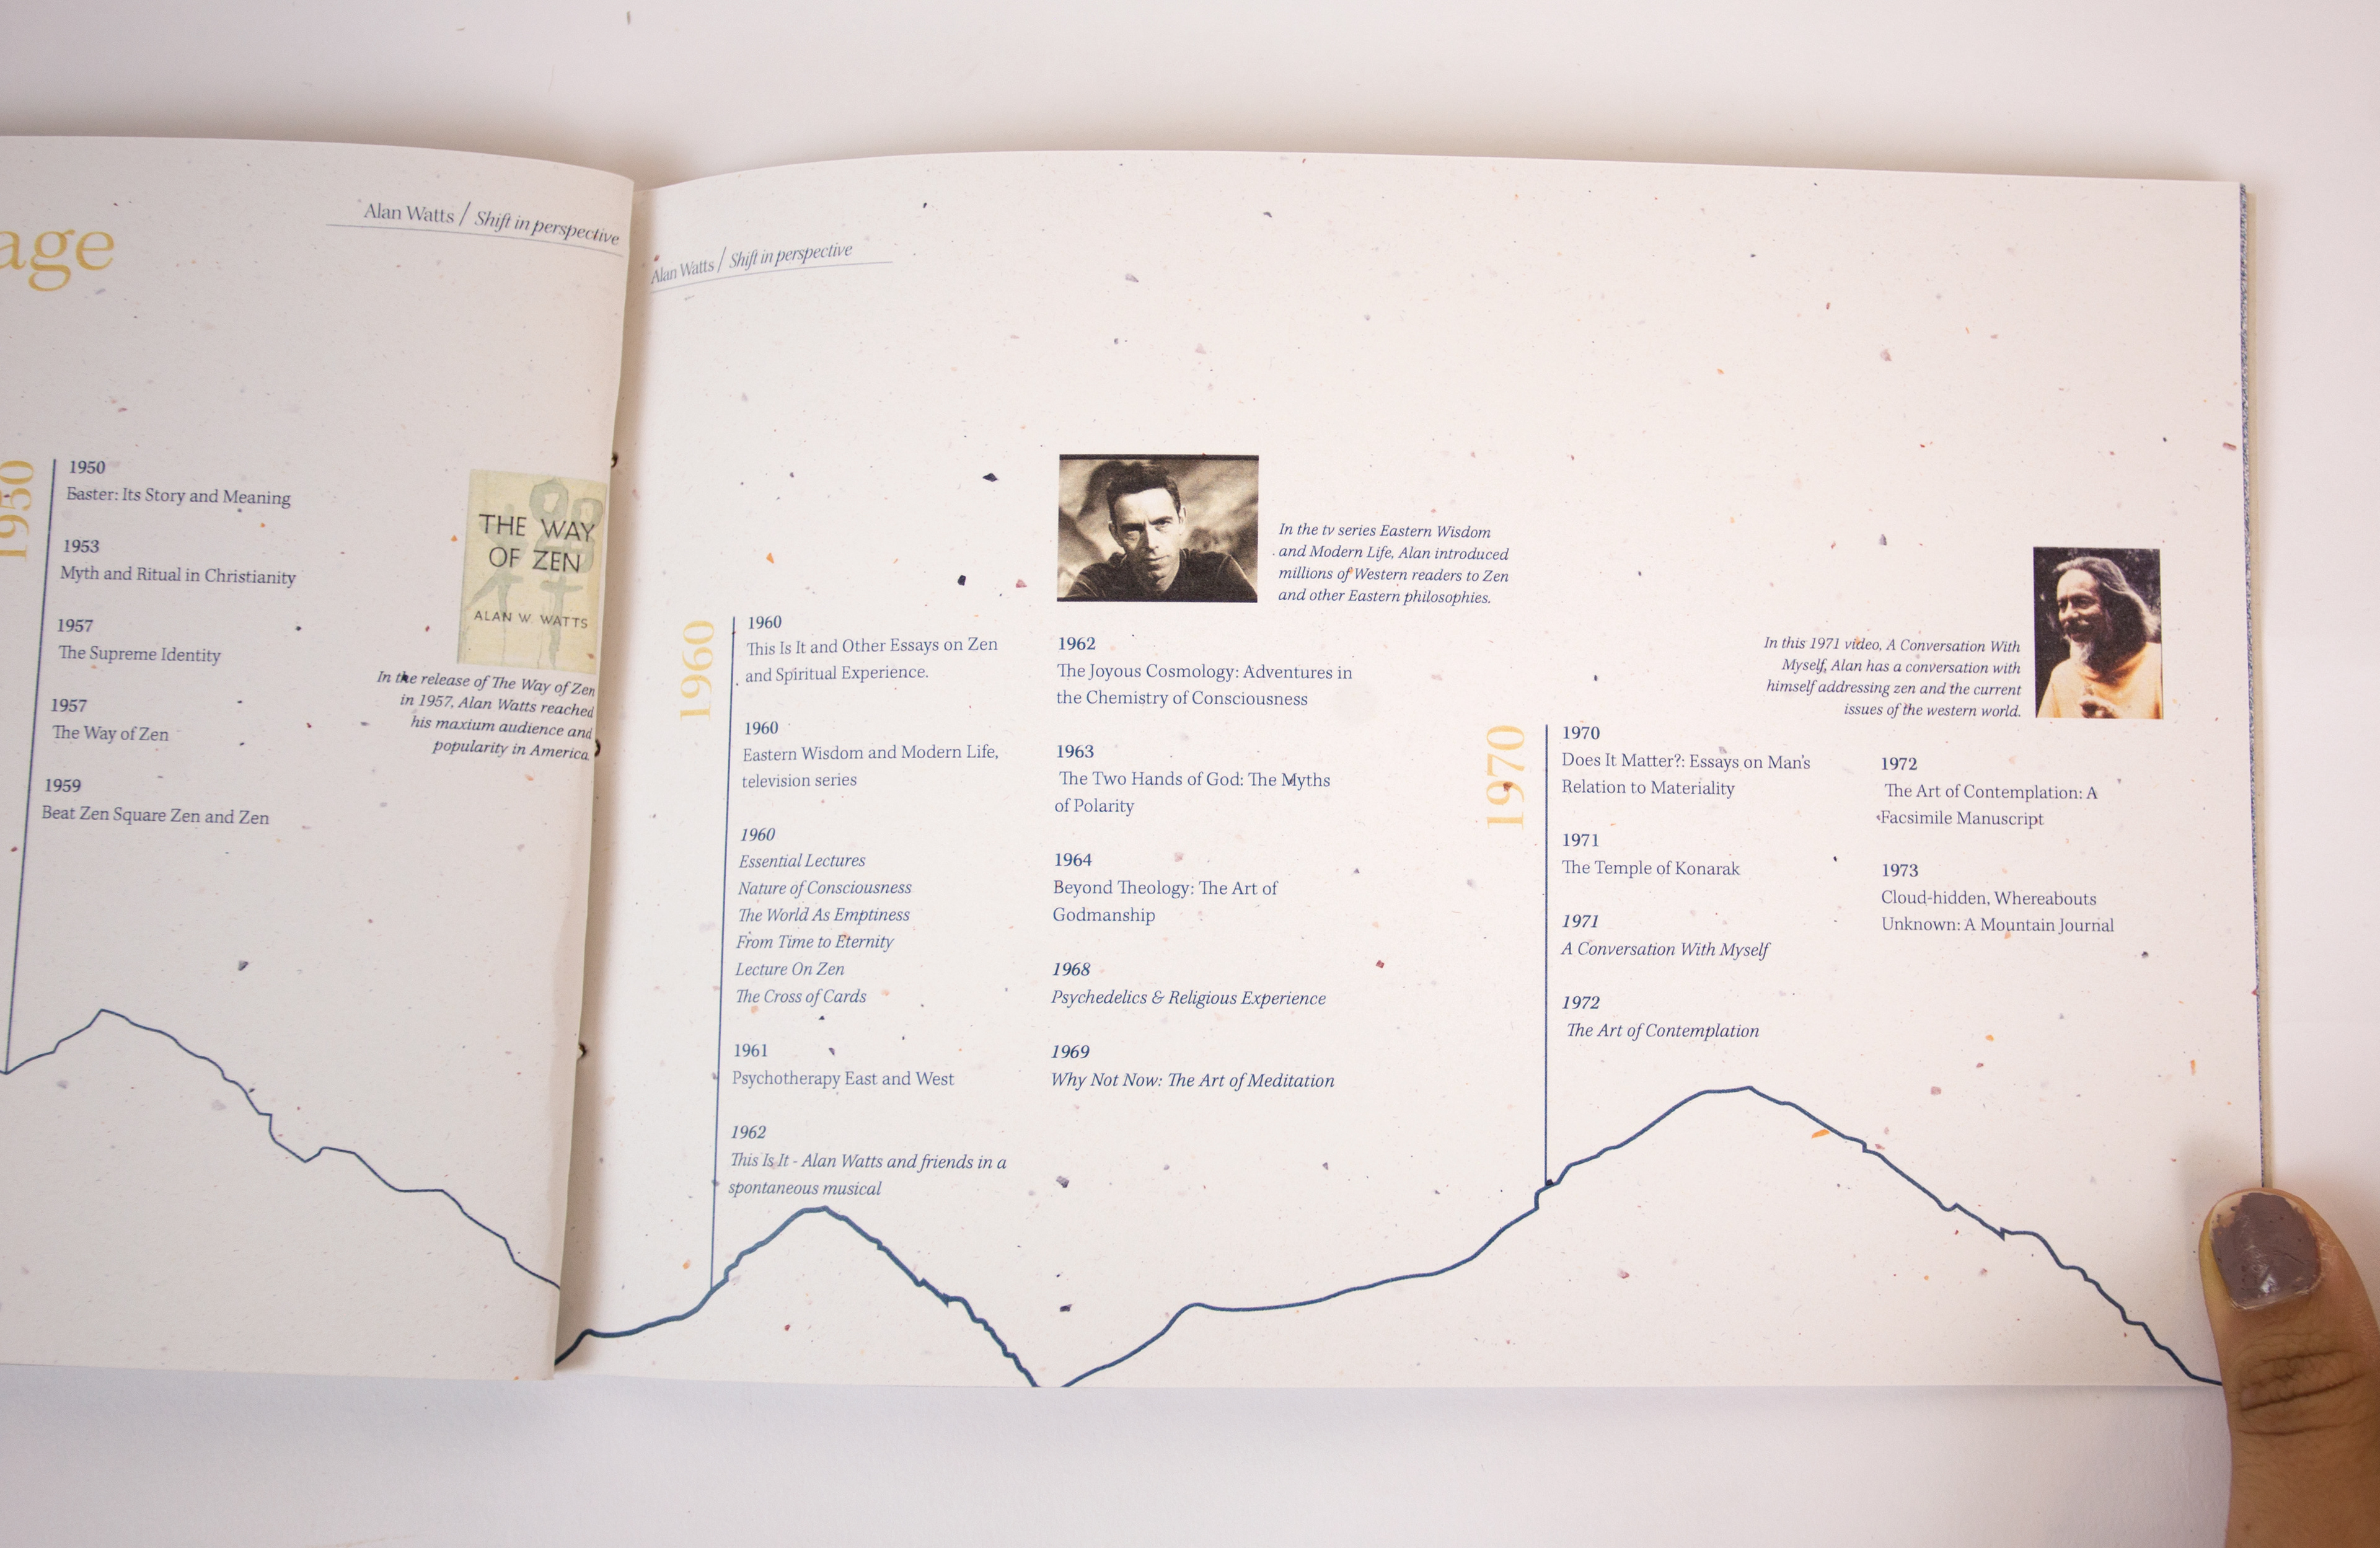 age
Alan Watts / Shift in perspective
1950
1950
Easter: Its Story and Meaning
1953
Myth and Ritual in Christianity
1957
The Supreme Identity
1957
The Way of Zen
1959
Beat Zen Square Zen and Zen
THE WAY
OF ZEN
ALAN W. WATTS
In the release of The Way of Zen
in 1957, Alan Watts reached
his maxium audience and
popularity in America.
Alan Watts / Shift in perspective
1960
1960
This Is It and Other Essays on Zen
and Spiritual Experience.
1960
Eastern Wisdom and Modern Life,
television series
1960
Essential Lectures
Nature of Consciousness
The World As Emptiness
From Time to Eternity
Lecture On Zen
The Cross of Cards
1961
Psychotherapy East and West
1962
This Is It - Alan Watts and friends in a
spontaneous musical
In the tv series Eastern Wisdom
and Modern Life, Alan introduced
millions of Western readers to Zen
and other Eastern philosophies.
1962
The Joyous Cosmology: Adventures in
the Chemistry of Consciousness
1963
The Two Hands of God: The Myths
of Polarity
1964
Beyond Theology: The Art of
Godmanship
1968
Psychedelics & Religious Experience
1969
Why Not Now: The Art of Meditation
1970
1970
Does It Matter?: Essays on Man's
Relation to Materiality
1971
The Temple of Konarak
1971
A Conversation With Myself
1972
The Art of Contemplation
In this 1971 video, A Conversation With
Myself, Alan has a conversation with
himself addressing zen and the current
issues of the western world.
1972
The Art of Contemplation: A
Facsimile Manuscript
1973
Cloud-hidden, Whereabouts
Unknown: A Mountain Journal